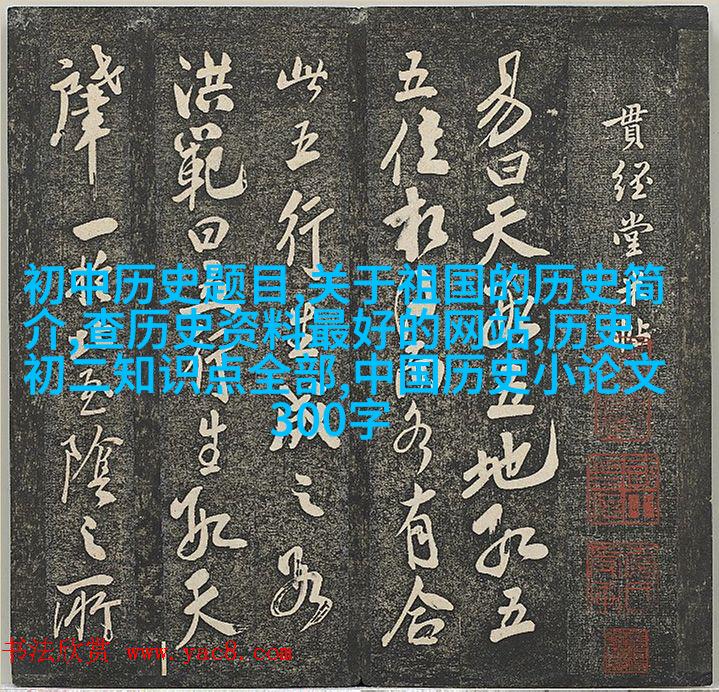 貫經堂米帖
易曰天數五地數五
五位相得而各有合
此五行生成之數
洪範曰五行生數天
一陰之所
初中历史题目,关于祖国的历史简
介,查历史资料最好的网站,历史
初二知识点全部,中国历史小论文
300字
书法欣赏 www.yac8.com